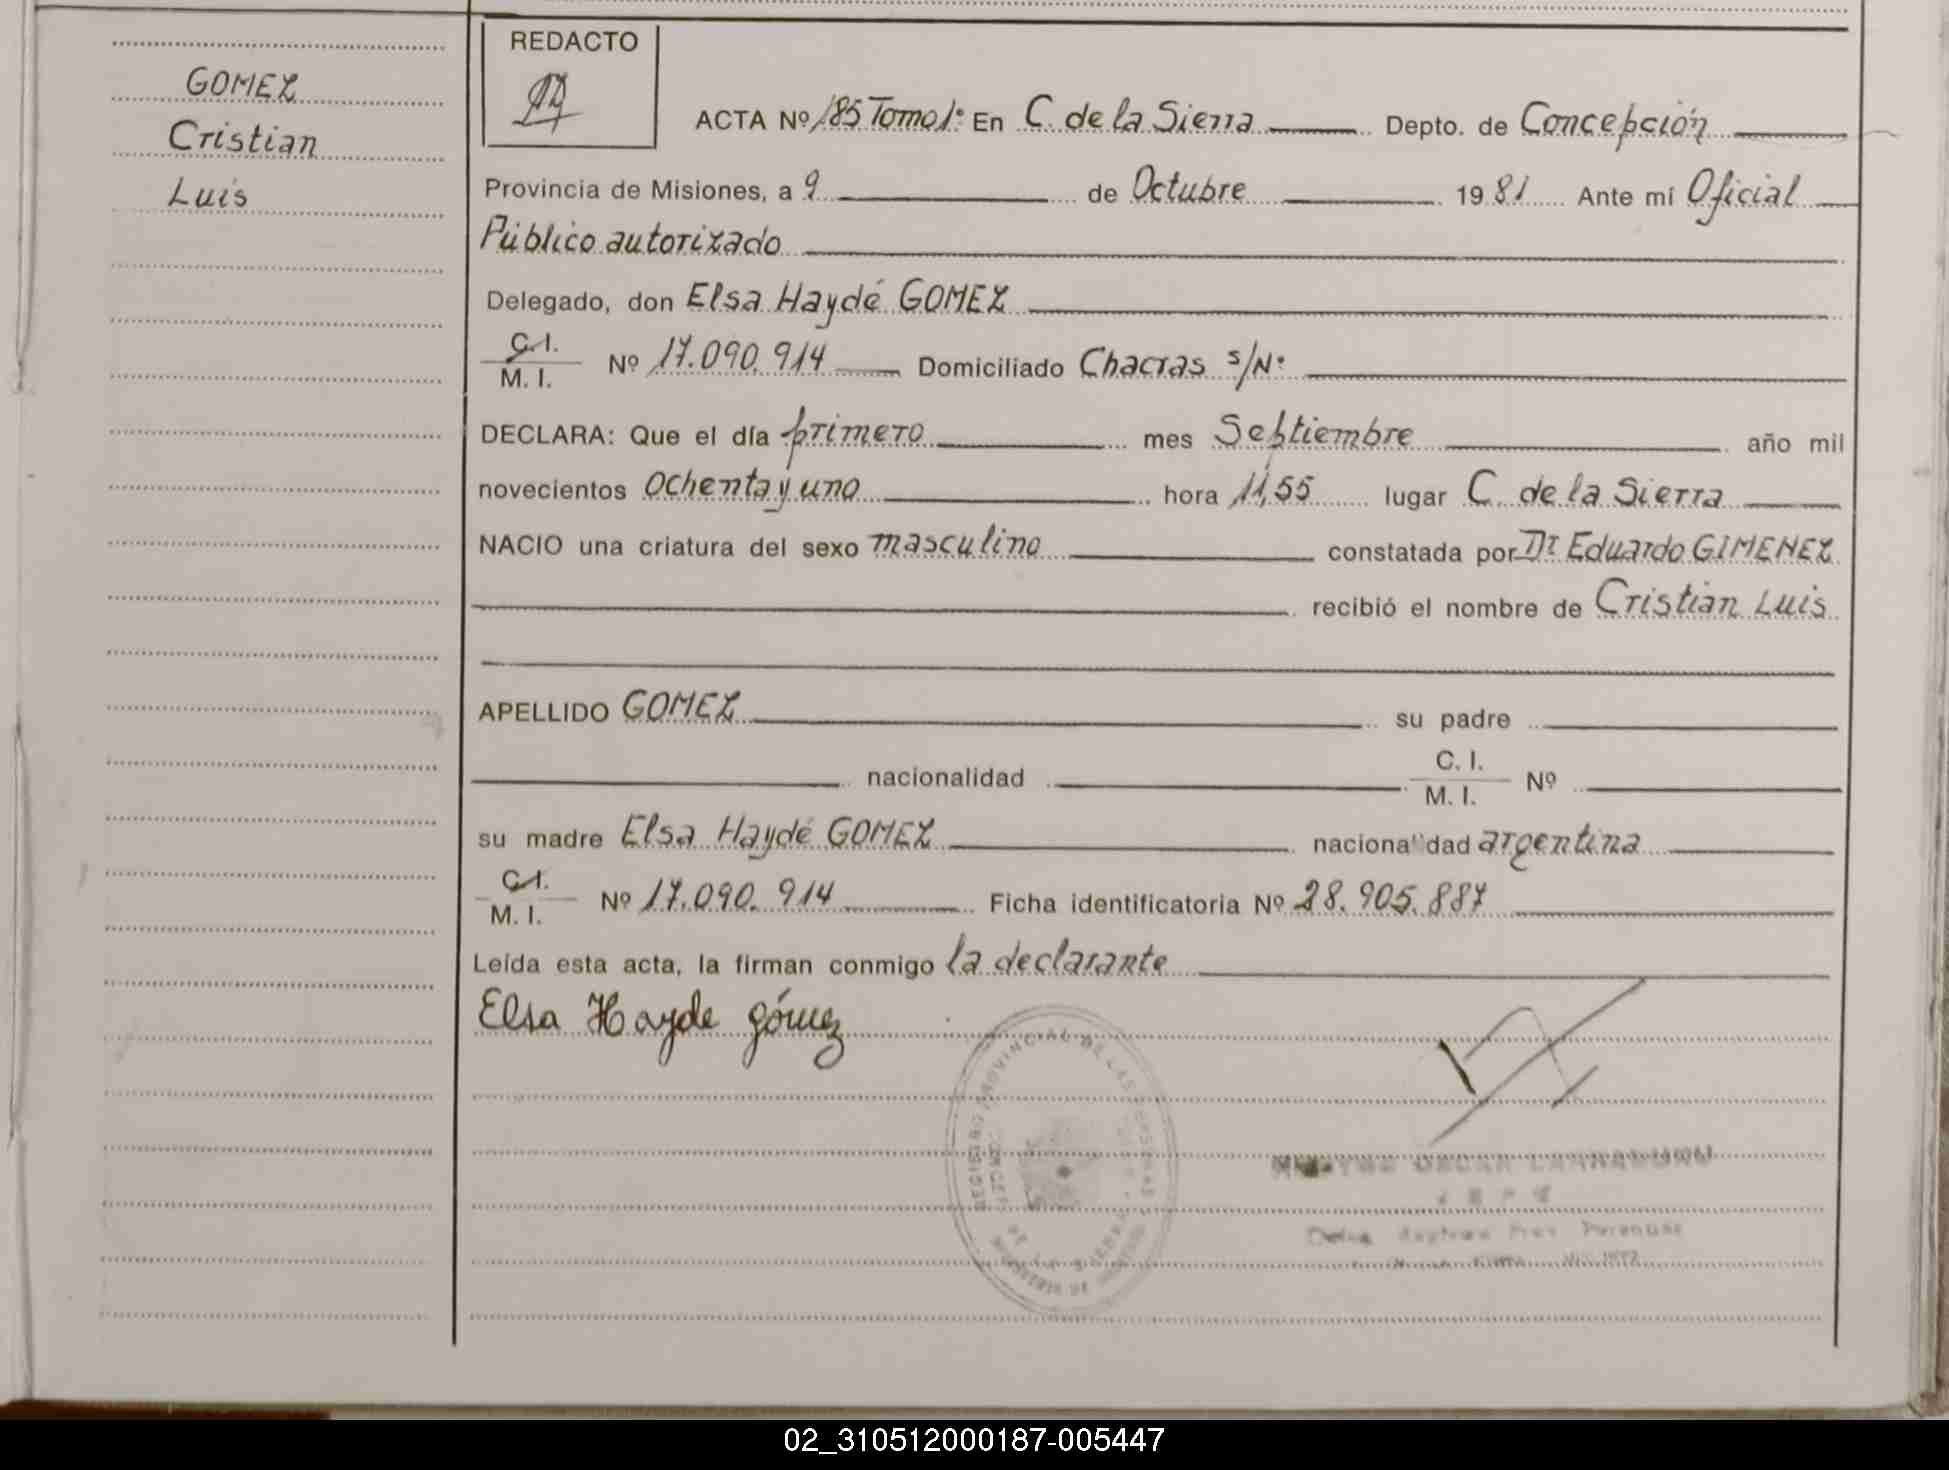 GOMEZ
Cristian
Luis
REDACTO
ACTA Nº 185 Tomo 1º En C. de la Sierra Depto. de Concepción
Provincia de Misiones, a 9 de Octubre 1981 Ante mí Oficial
Público autorizado
Delegado, don Elsa Haydé GOMEZ
C. I.
M. I. Nº 17.090.914 Domiciliado Chacras s/Nº
DECLARA: Que el día primero mes Septiembre año mil
novecientos ochenta y uno hora 11,55 lugar C. de la Sierra
NACIO una criatura del sexo masculino constatada por Dr Eduardo GIMENEZ
recibió el nombre de Cristian Luis
APELLIDO GOMEZ su padre
nacionalidad C. I.
M. I. Nº
su madre Elsa Haydé GOMEZ nacionalidad argentina
C. I.
M. I. Nº 17.090.914 Ficha identificatoria Nº 28.905.887
Leída esta acta, la firman conmigo la declarante
Elsa Hayde Gómez
REGISTRO PROVINCIAL DE LAS PERSONAS
DE LA SIERRA
OSCAR
JEFE
02_310512000187-005447